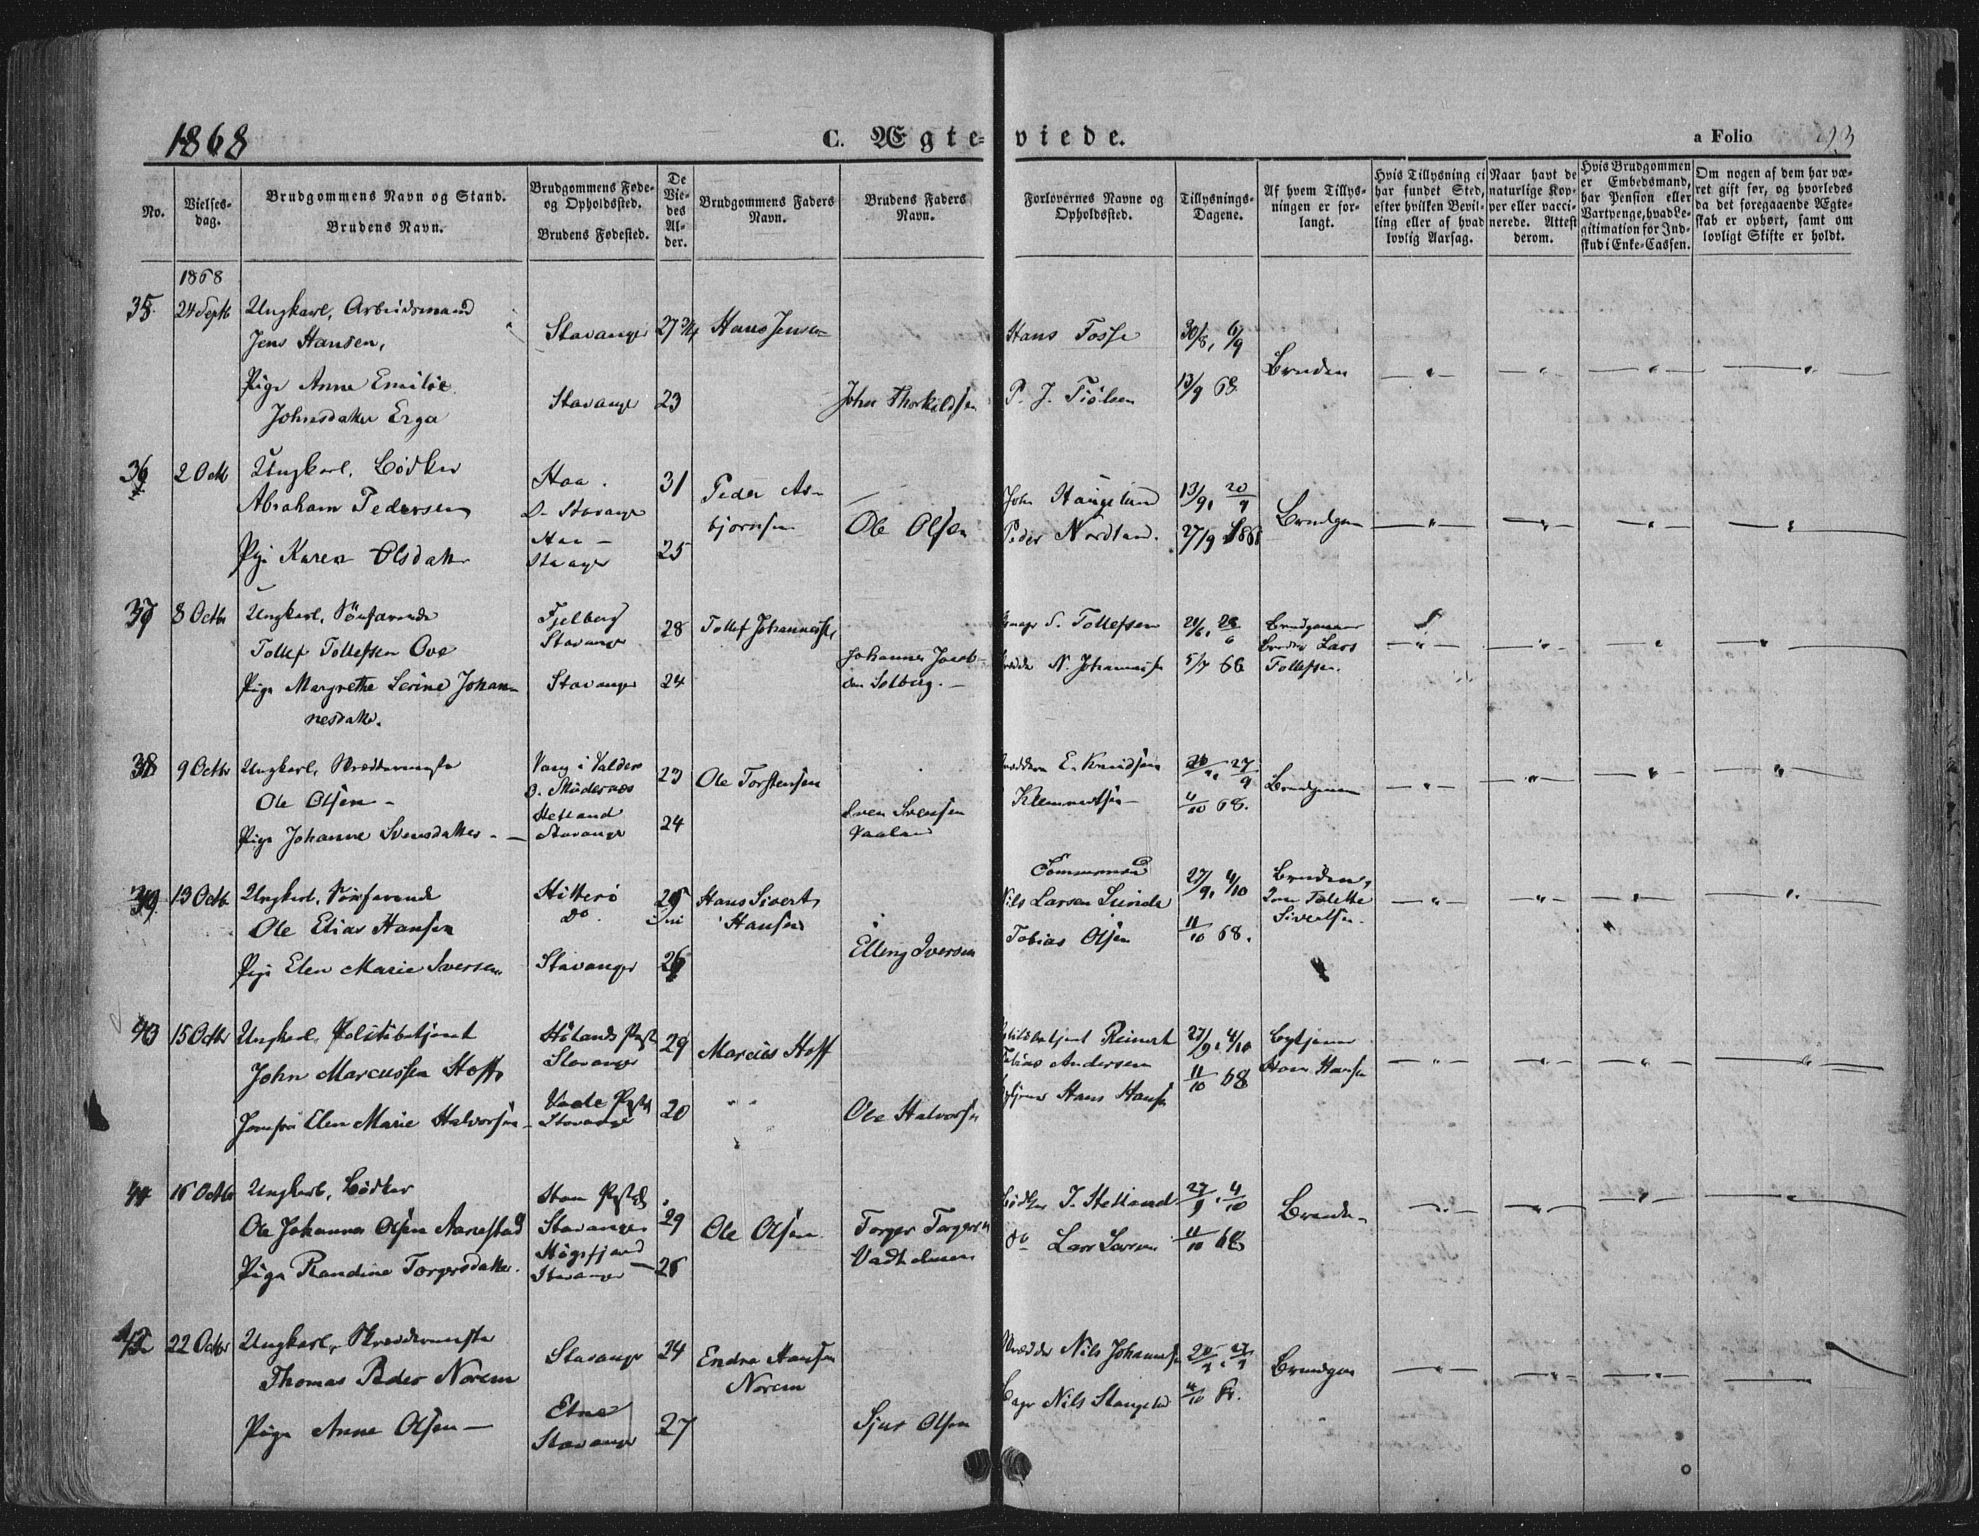 1868
C. Ægte-viede.
a Folio 93
No.
Vielses-dag.
Brudgommens Navn og Stand.
Brudens Navn.
Brudgommens Føde- og Opholdssted.
Brudens Fødested.
De Viedes Alder.
Brudgommens Faders Navn.
Brudens Faders Navn.
Forlovernes Navne og Opholdssted.
Tillysnings-Dagene.
Af hvem Tillysningen er forlangt.
Hvis Tillysning ei har fundet Sted, efter hvilken Bevilling eller af hvad lovlig Aarsag.
Naar havt de naturlige Kopper eller vaccinerede. Attest derom.
Hvis Brudgommen er Embedsmand, har Pension eller Vartpenge, hvad Legitimation for Indskud i Enke-Cassen.
Om nogen af dem har været gift før, og hvorledes da det foregaaende Ægteskab er ophørt, samt om lovligt Skifte er holdt.
1868
35. 24 Septb Ungkarl, Arbeidsmand Stavanger 27 3/4 Hans Jensen Hans Fosse 30/8, 6/9 Bruden
Jens Hansen,
Pige Anne Emilie Stavanger 23 John Thorkildsen P. J. Tiölsen 13/9 68
Johnsdatter Erga
36 2 Octb Ungkarl, Bødker Haa. 31 Peder As- John Haugeland 13/9, 20/9 Brudgom
Abraham Pedersen D. Stavanger bjørnsen Ole Olsen Peder Nordland. 27/9 1868
Pige Karen Olsdatter Haa - Stavanger 25
37 8 Octbr Ungkarl, Søefarende Fjelberg Stavanger 28 Tollef Johannessen S. Tollefsen Brudgommens
Tollef Tollefsen Ove Johannes Jacob- N. Johannessen 5/7 68 Broder Lars
Pige Margrethe Serine Johan- Stavanger 24 sen Solberg. - Tollefsen.
nesdatter.
38 9 Octbr Ungkarl, Skreddermester Vang i Valders 23 Ole Torstensen E. Knudsen 20/9, 27/9 Brudgommen
Ole Olsen - Klemmetsen 4/10 68.
Pige Johanne Svensdatter - Hetland Stavanger 24 Sven Svensen Vaaland
39 13 Octb Ungkarl, Søefarende Hitterö 25 Hans Sivert Nils Larsen Lunde 27/9, 4/10 Bruden,
Ole Elias Hansen Do. Hansen Tobias Olsen 11/10 68. Sivertsen.
Pige Elen Marie Iversen Stavanger 26 Elling Iversen
40 15 Octbr Ungkarl, Politibetjent Hölands Pgst Stavanger 29 Marcus Hoff Politibetjent Reinert 27/9, 4/10 Bytjener
John Marcussen Hoff Tobias Andersen 11/10 68 Hans Hansen
Jomfru Elen Marie Halvorsen - Pgst Stavanger 20 Ole Halvorsen Bytjener Hans Hansen
41 16 Octbr Ungkarl, Bødker Pgst Stavanger 29 Ole Olsen Torger Torgersen Bødker T. Hetland 27/9, 4/10 Bruden
Ole Johannes Olsen Aarestad Vadholmen do Lars Larsen 11/10 68
Pige Randine Torgersdatter. Høgsfjord Stavanger 26
42 22 Octbr Ungkarl, Skreddermester Stavanger 24 Endre Hansen Skrædder Nils Johannessen 20/9, 27/9 Brudgom
Thomas Peder Norem Norem Nils Haugeland 4/10 68.
Pige Anne Olsen - Etne Stavanger 27 Sjur Olsen